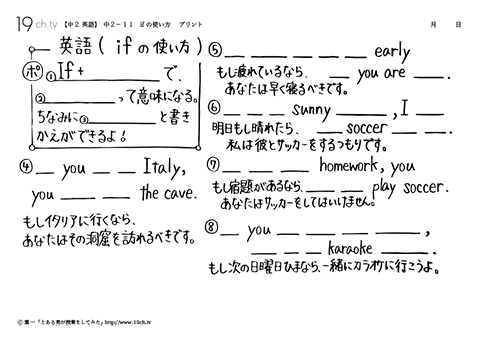 19 ch.tv 【中2 英語】 中2-11 ifの使い方 プリント 月 日
英語( if の使い方 )
ポ ①If + ______ で、
②______って意味になる。
ちなみに③______と書き
かえができるよ!
④ __ you __ __ Italy,
you __ __ the cave.
もしイタリアに行くなら、
あなたはその洞窟を訪れるべきです。
⑤ __ __ __ __ __ __ early
もし疲れているなら、 __ you are __.
あなたは早く寝るべきです。
⑥ __ __ __ sunny ____, I __
明日もし晴れたら、 __ soccer __ __.
私は彼とサッカーをするつもりです。
⑦ __ __ __ __ homework, you
もし宿題があるなら、 __ __ play soccer.
あなたはサッカーをしてはいけません。
⑧ __ you __ __ __ __,
__ __ __ karaoke ____.
もし次の日曜日ひまなら、一緒にカラオケに行こうよ。
© 葉一「とある男が授業をしてみた」http://www.19ch.tv